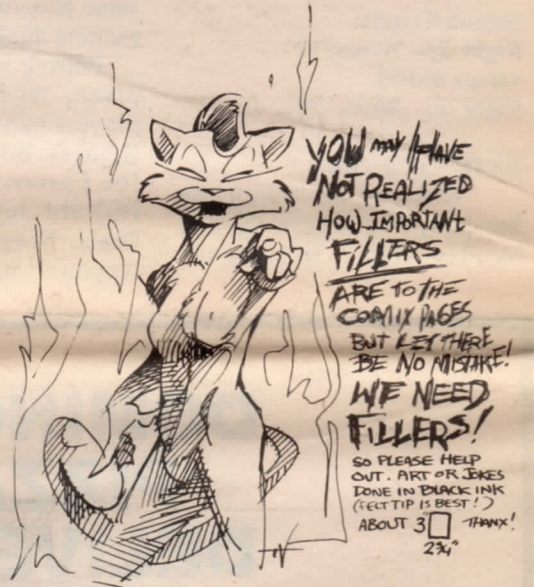 YOU MAY HAVE
NOT REALIZED
HOW IMPORTANT
FILLERS
ARE TO THE
COMIX PAGES
BUT LET THERE
BE NO MISTAKE!
WE NEED
FILLERS!
SO PLEASE HELP
OUT. ART OR JOKES
DONE IN BLACK INK
(FELT TIP IS BEST!)
ABOUT 3 THANX!
2¾"